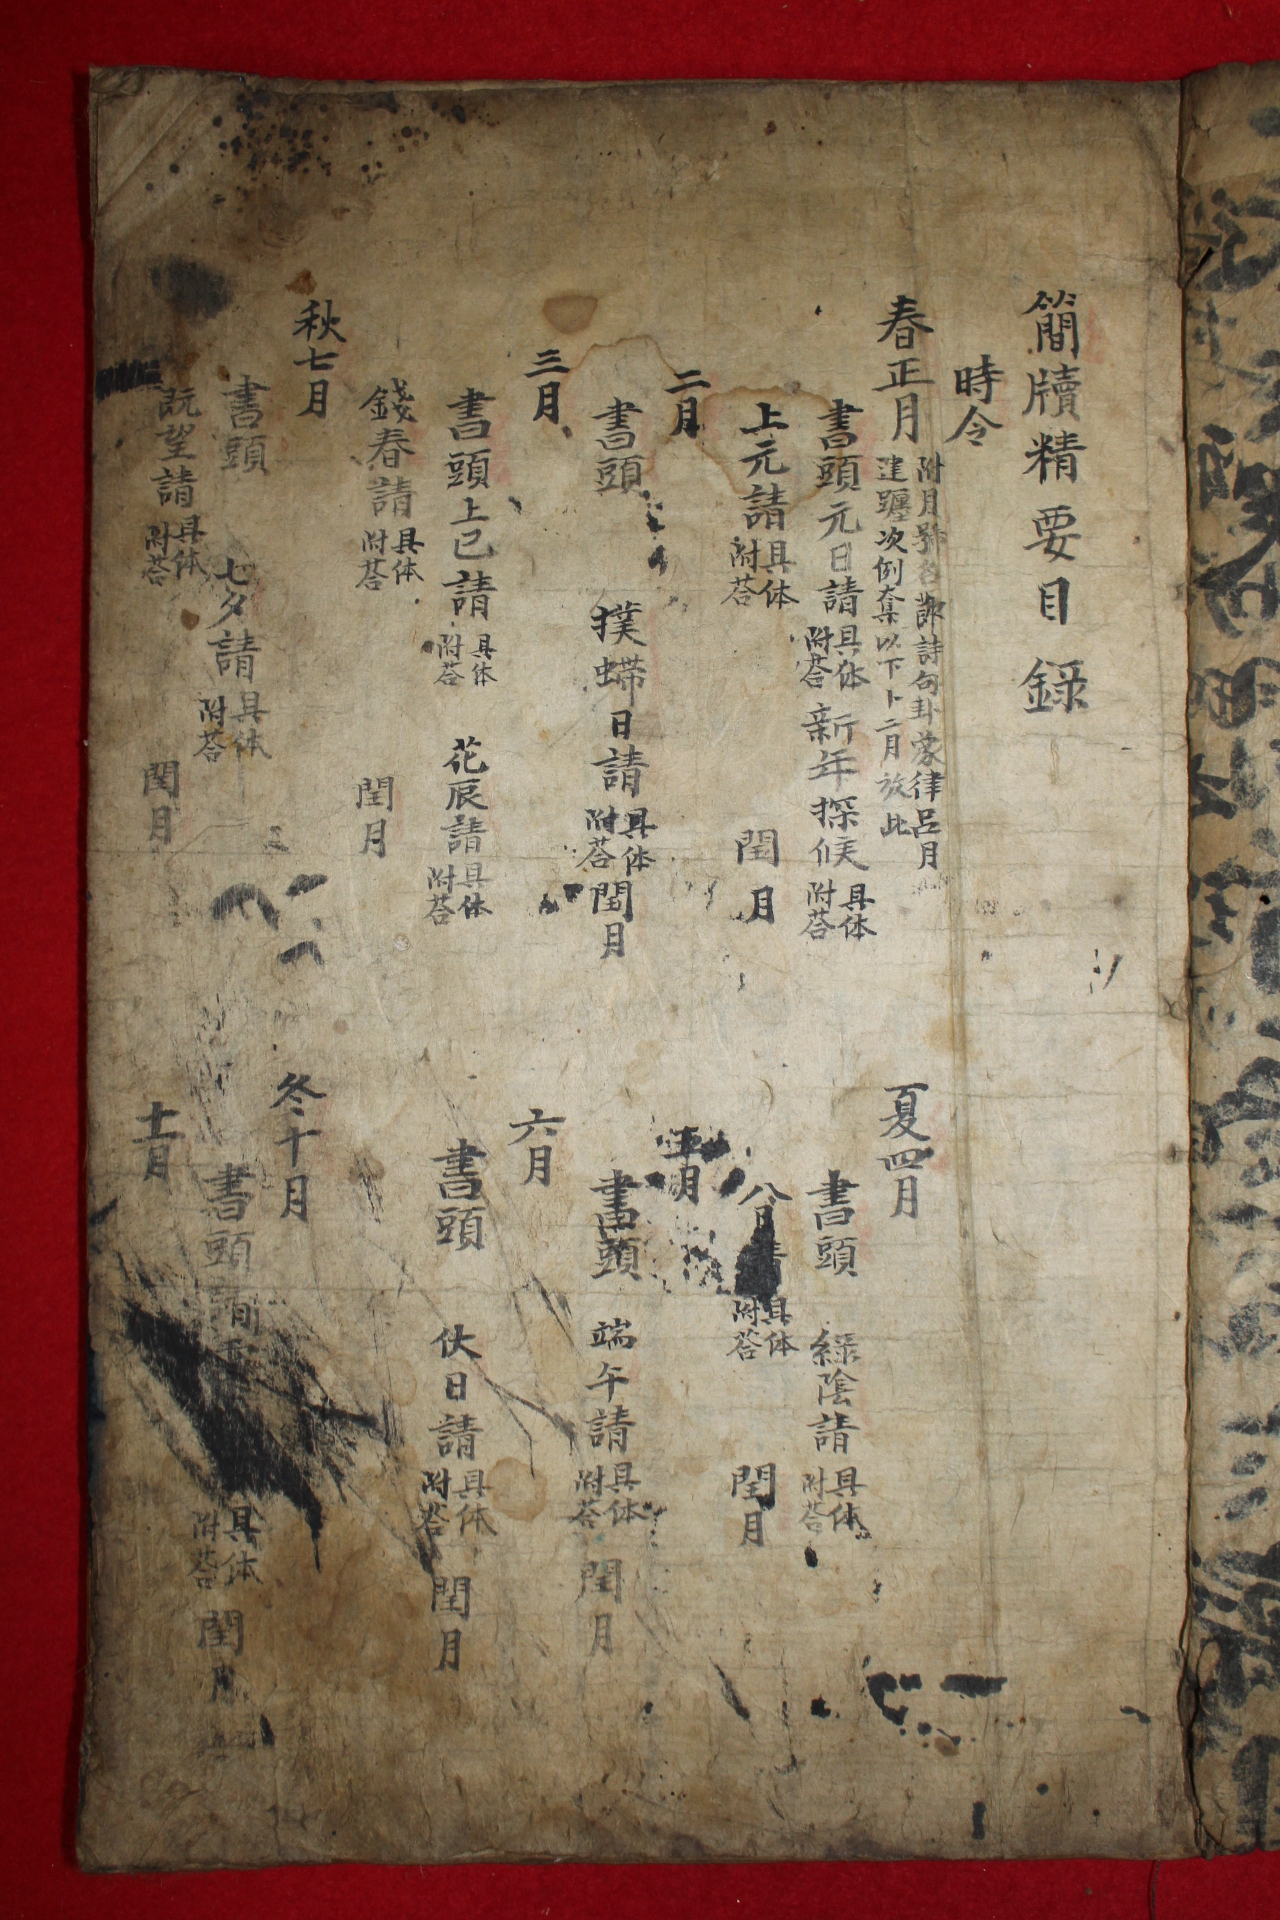 簡牘精要目錄
時令
春正月
附月號各節詩句卦彖律呂月
建躔次例大集以下十二月放此
書頭 元日請 具体附荅 新年探候 具体附荅
上元請 具体附荅 閏月
二月
書頭 撲蝶日請 具体附荅 閏月
三月
書頭 上巳請 具体附荅 花辰請 具体附荅
餞春請 具体附荅 閏月
夏四月
書頭 綠陰請 具体附荅
八日請 具体附荅 閏月
五月
書頭 端午請 具体附荅 閏月
六月
書頭 伏日請 具体附荅 閏月
秋七月
書頭 七夕請 具体附荅
旣望請 具体附荅 閏月
冬十月
書頭 具体附荅 閏月
十一月